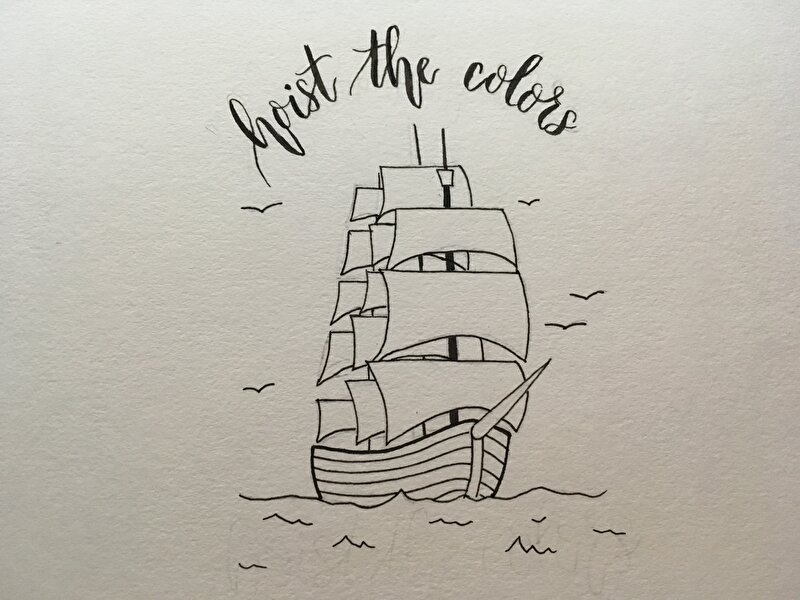 hoist the colors